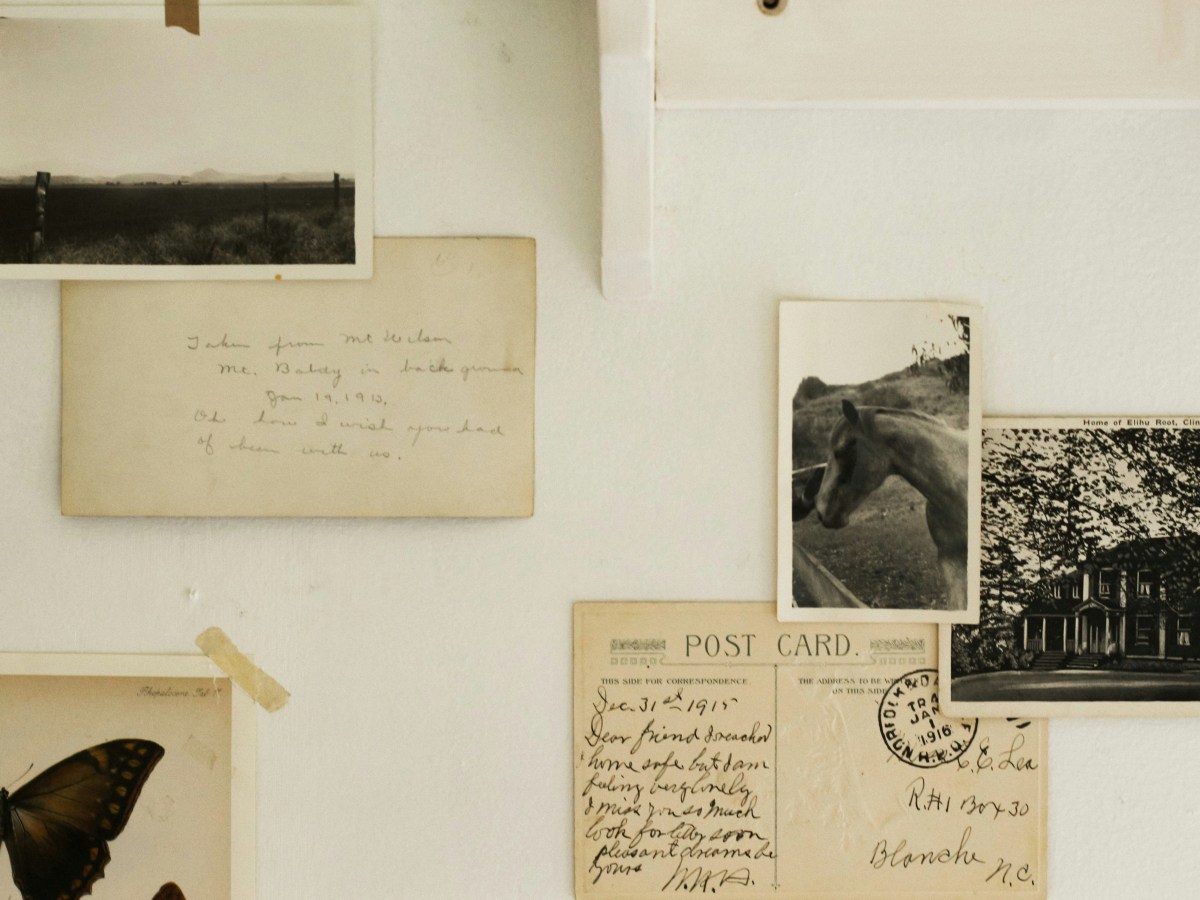 Taken from Mt Wilson
Mt. Baldy in background
Jan 19, 1913.
Oh how I wish you had
of been with us.
Home of Elihu Root, Clin
POST CARD.
THIS SIDE FOR CORRESPONDENCE.
THE ADDRESS TO BE
ON THIS SIDE
Dec. 31st 1915
Dear friend I reached
home safe but I am
feeling very lonely
I miss you so much
look for letter soon
pleasant dreams be
yours
NORFOLK &
TR
JAN
1
1916
R.P.O.
C. C. Lea
R.#1 Box 30
Blanche
N.C.